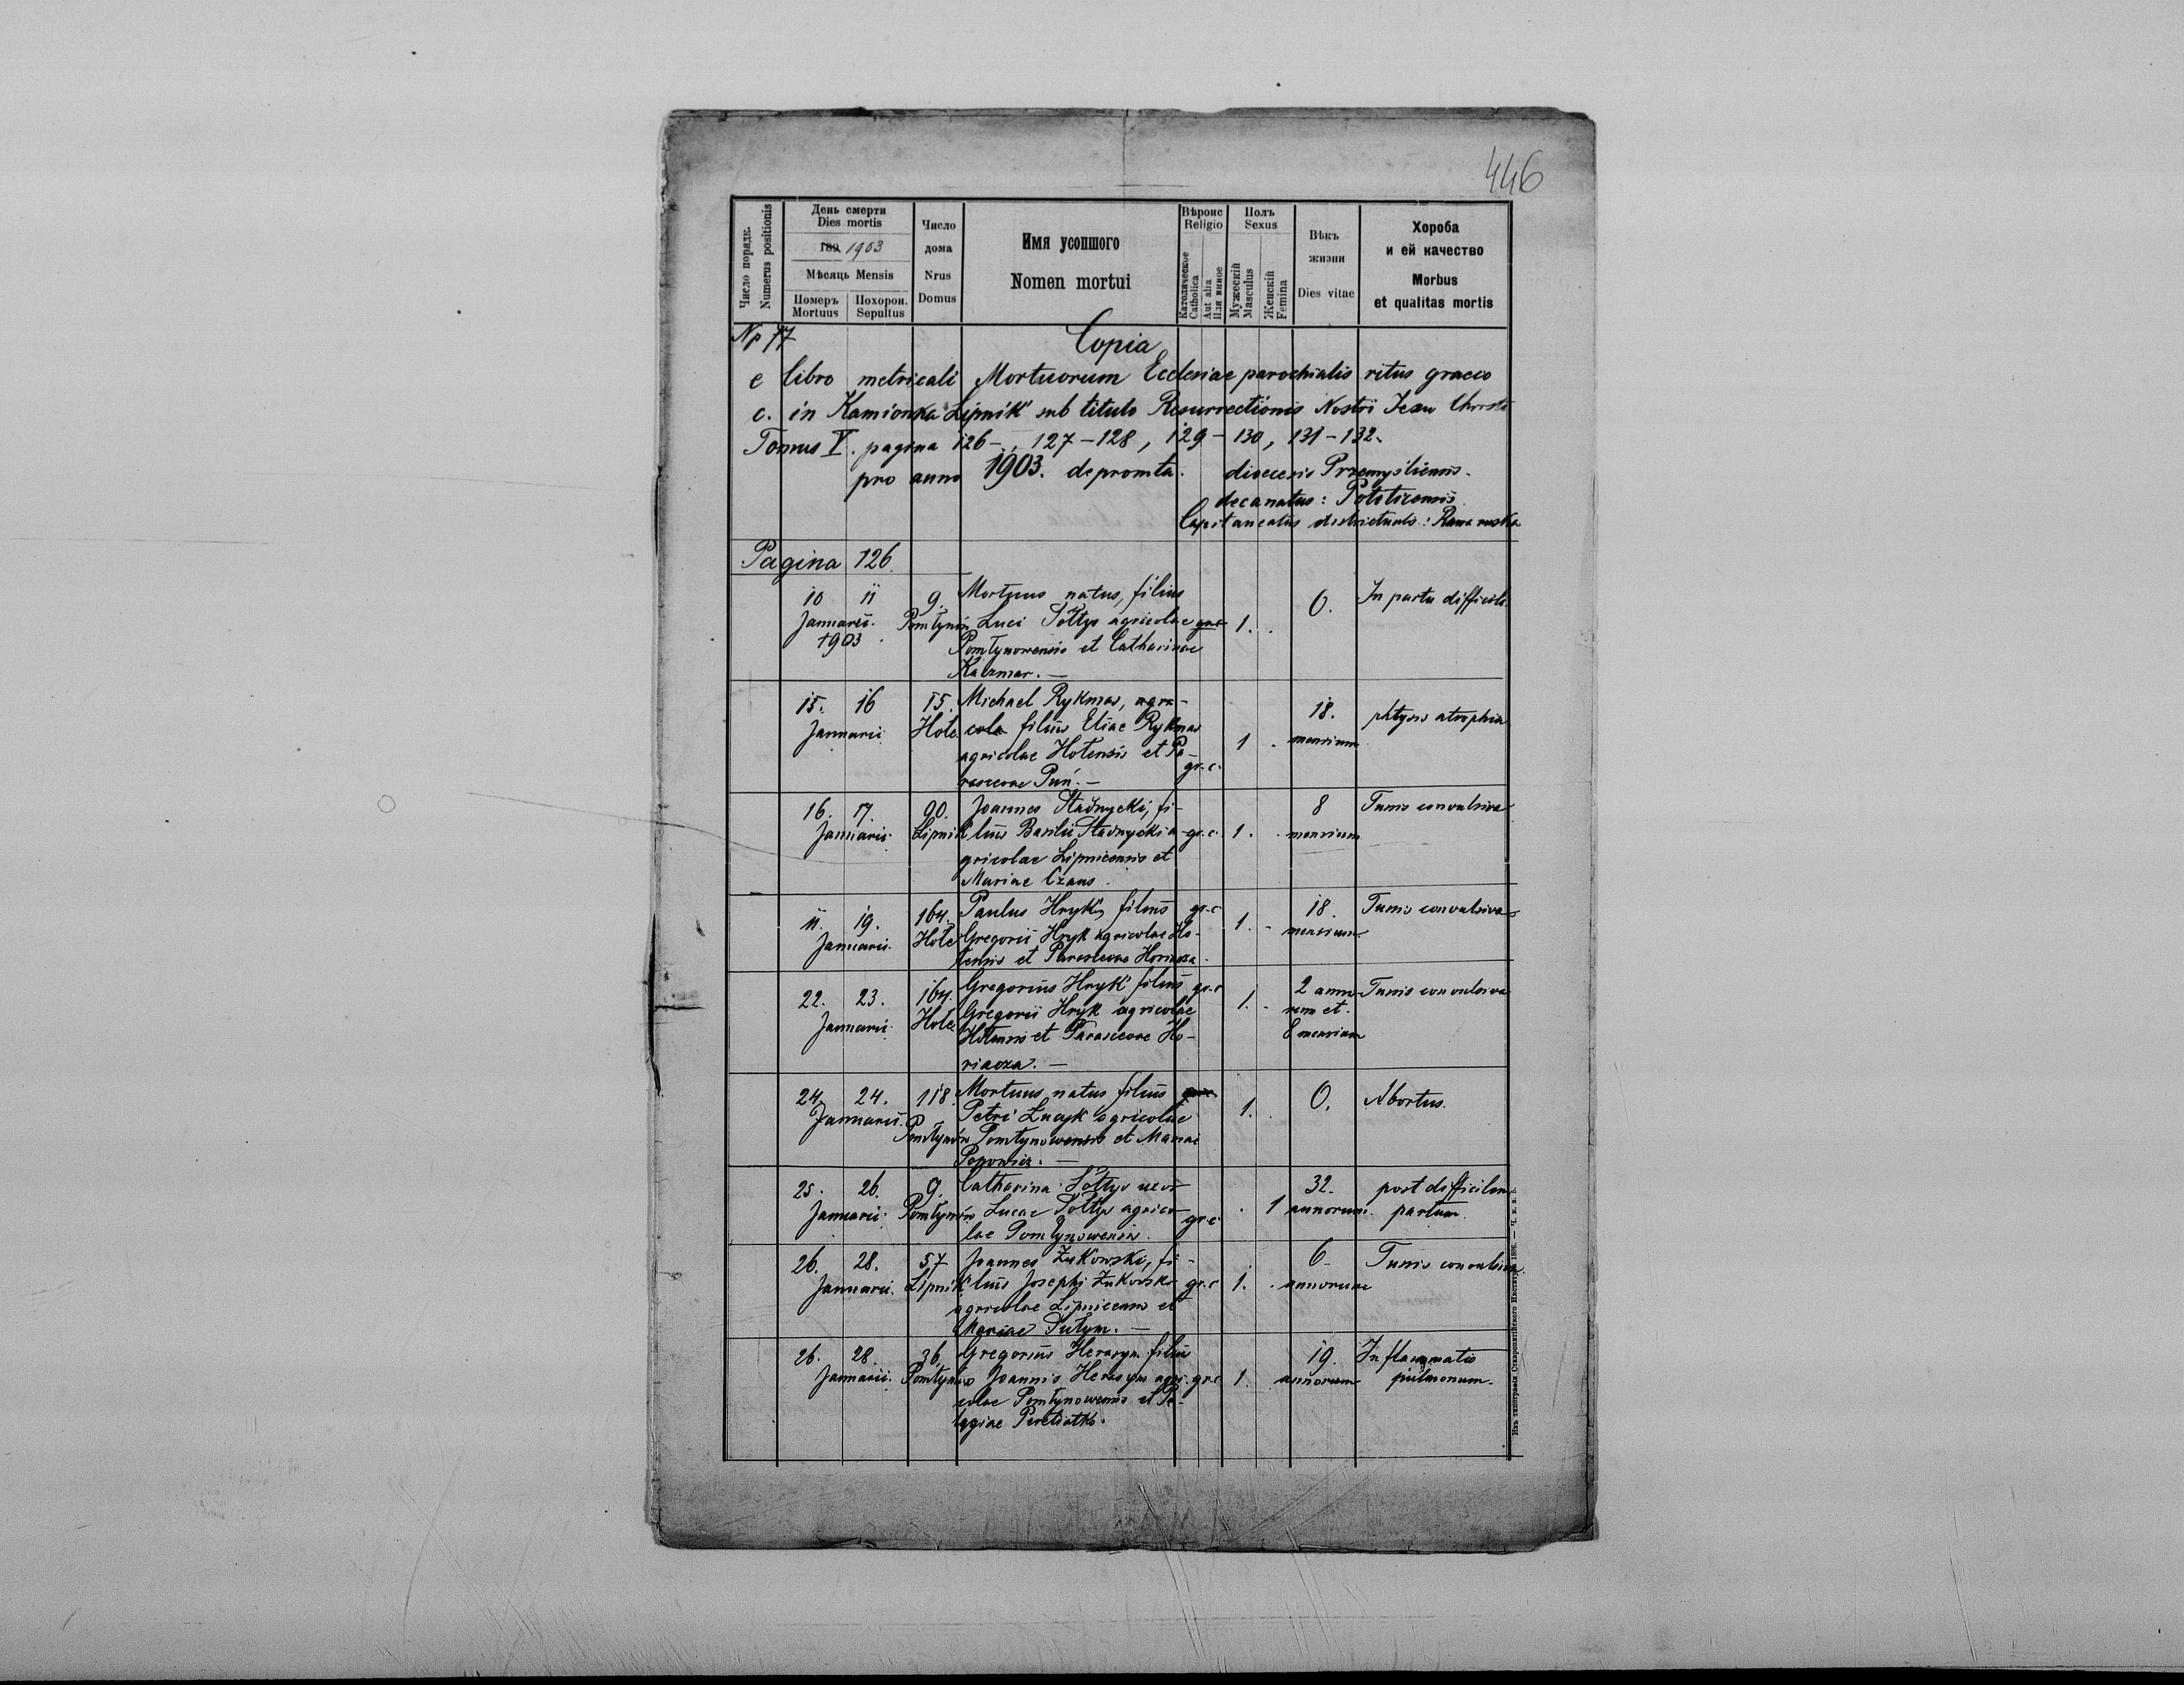 446
Число порядк.
Numerus positionis
День смерти
Dies mortis
189 1903
Мѣсяць Mensis
Померъ
Mortuus
Похорон.
Sepultus
Число
дома
Nrus
Domus
Имя усопшого
Nomen mortui
Вѣроис
Religio
Католическое
Catholica
Aut alia
Или инное
Полъ
Sexus
Мужескій
Masculus
Женскій
Femina
Вѣкъ
жизни
Dies vitae
Хороба
и ей качество
Morbus
et qualitas mortis
Copia
e libro metricali Mortuorum Ecclesiae parochialis ritus graeco
c. in Kamionka Lipnik sub titulo Resurrectionis Nostri Jesu Christi
Tomus V. pagina 126-, 127-128, 129-130, 131-132.
pro anno 1903. depromta. dioecesis Przemysliensis.
decanatus: Potiticensis
Capitaneatus districtualis: Rawa ruska
Pagina 126.
10 11 9. Mortuus natus, filius 0. In partu difficili
Januarii. Pomłynów Luci Sołtys agricolae gr.c 1.
1903 Pomłynowensis et Catharinae
Kaczmar. —
15. 16 15. Michael Rykmas, agri- 18. phtysis atrophia
Januarii Hole cola filius Eliae Rykmas mensium
agricolae Holensis et Pa- 1
rascevae Pun. — gr.c.
16. 17. 90. Joannes Stadnycki, fi- 8 Tussis convulsiva
Januarii. Lipnik lius Basilii Stadnycki a- gr.c. 1. mensium
gricolae Lipnicensis et
Mariae Czaus.
11. 19. 164. Paulus Hryk, filius gr.c 1. 18. Tussis convulsiva
Januarii. Hole Gregorii Hryk agricolae Ho- mensium
lensis et Parascevae
22. 23. 164. Gregorius Hryk filius gr.c 2 anno- Tussis convulsiva
Januarii. Hole Gregorii Hryk agricolae 1. rum et
Holensis et Parascevae Ho- 8 mensium
24. 24. 118. Mortuus natus filius 0. Abortus.
Januarii. Petri Łucyk agricolae 1.
Pomłynów Pomłynowensis et Mariae
Popowicz. —
25. 26. 9. Catharina Sołtys uxor 32. post difficilem
Januarii. Pomłynów Lucae Sołtys agrico- gr.c 1 annorum. partum.
lae Pomłynowensis.
26. 28. 57 Joannes Żukowski, fi- 6 Tussis convulsiva
Januarii. Lipnik lius Josephi Żukowski gr.c 1. annorum
agricolae Lipnicensis et
Mariae Sutym. —
26. 28. 36. Gregorius Herasym filius 19. Inflammatio
Januarii. Pomłynów Joannis Herasym agri- gr.c 1. annorum pulmonum.
colae Pomłynowensis et Pe-
lagiae Peretiatko.